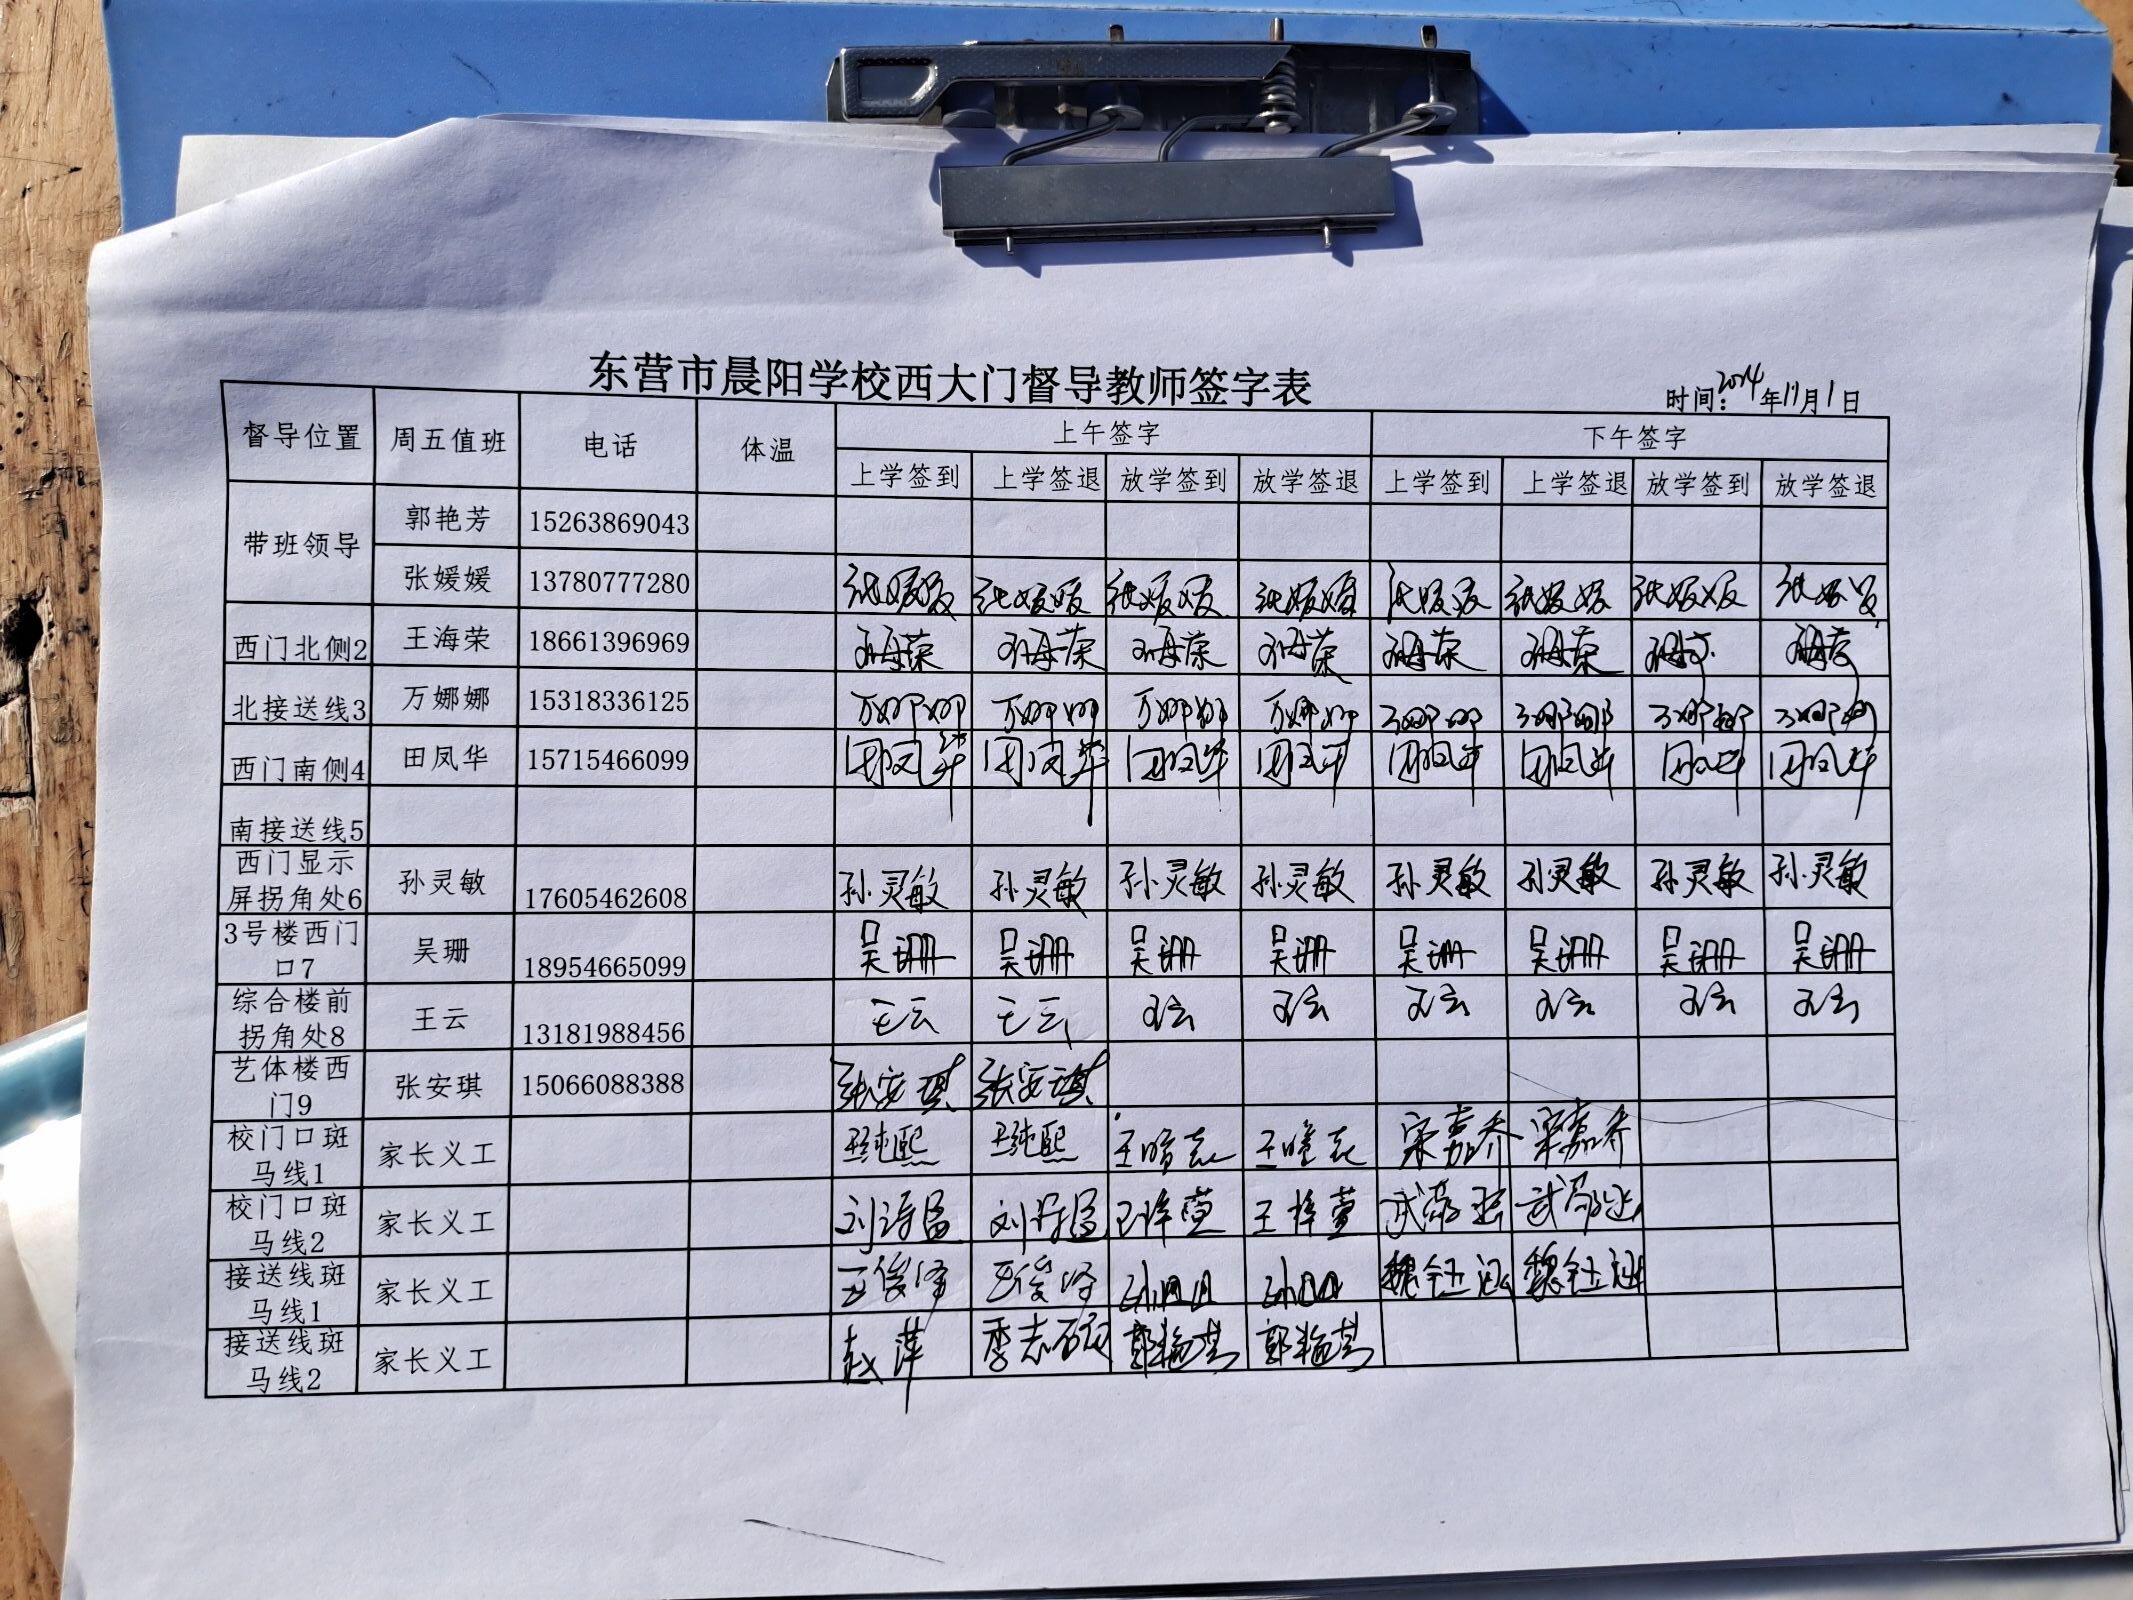 东营市晨阳学校西大门督导教师签字表
时间：2014年11月1日
督导位置 周五值班 电话 体温 上午签字 下午签字
上学签到 上学签退 放学签到 放学签退 上学签到 上学签退 放学签到 放学签退
带班领导
郭艳芳 15263869043
张媛媛 13780777280 张媛媛 张媛媛 张媛媛 张媛媛 张媛媛 张媛媛 张媛媛 张媛媛
西门北侧2 王海荣 18661396969 王海荣 王海荣 王海荣 王海荣 王海荣 王海荣 王海荣 王海荣
北接送线3 万娜娜 15318336125 万娜娜 万娜娜 万娜娜 万娜娜 万娜娜 万娜娜 万娜娜 万娜娜
西门南侧4 田凤华 15715466099 田凤华 田凤华 田凤华 田凤华 田凤华 田凤华 田凤华 田凤华
南接送线5
西门显示
屏拐角处6 孙灵敏 17605462608 孙灵敏 孙灵敏 孙灵敏 孙灵敏 孙灵敏 孙灵敏 孙灵敏 孙灵敏
3号楼西门
口7 吴珊 18954665099 吴珊 吴珊 吴珊 吴珊 吴珊 吴珊 吴珊 吴珊
综合楼前
拐角处8 王云 13181988456 王云 王云 王云 王云 王云 王云 王云 王云
艺体楼西
门9 张安琪 15066088388 张安琪 张安琪
校门口斑
马线1 家长义工 王纯熙 王纯熙 宋嘉乔 宋嘉乔
校门口斑
马线2 家长义工 王梓萱 王梓萱
接送线斑
马线1 家长义工 王俊泽 王俊泽 魏钰涵 魏钰涵
接送线斑
马线2 家长义工 赵萍